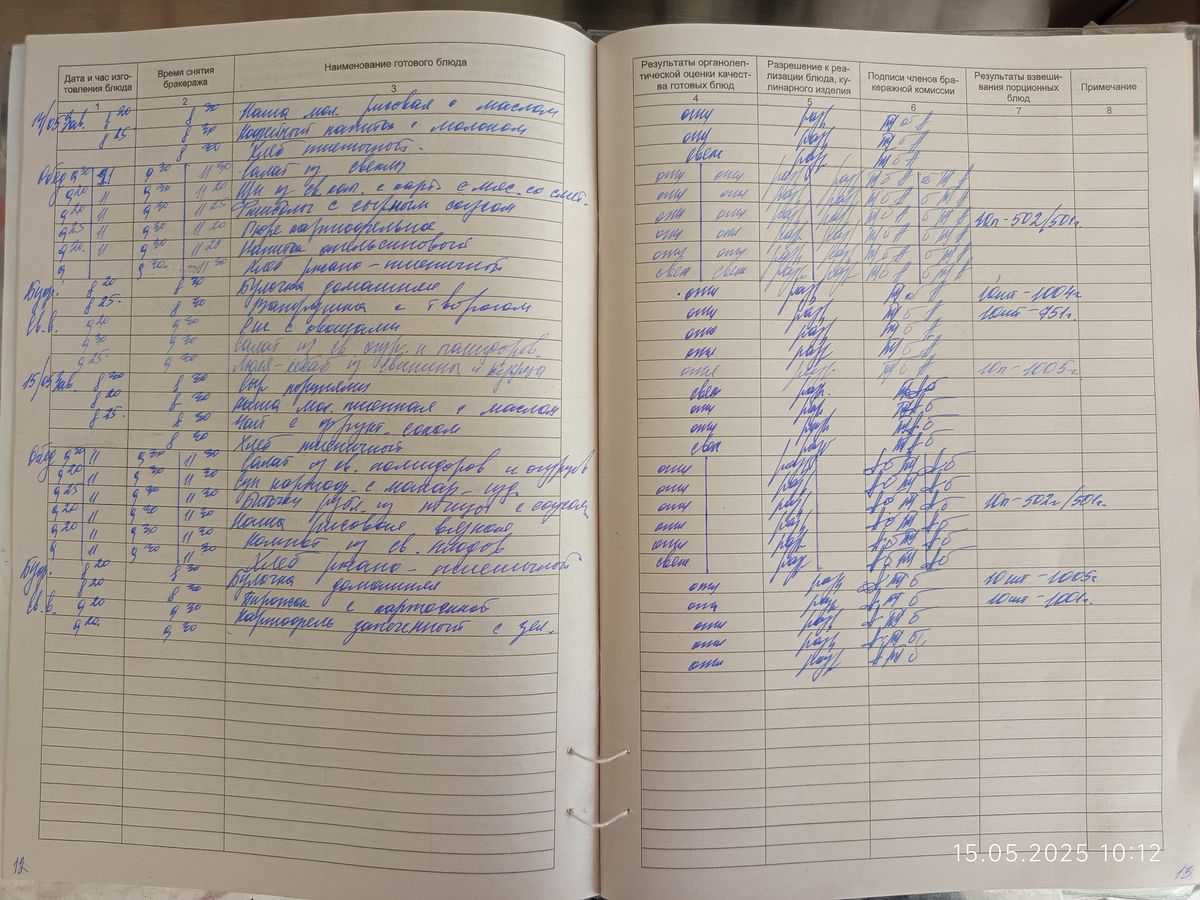 Дата и час изго-
товления блюда
Время снятия
бракеража
Наименование готового блюда
1 2 3
14/05 Зав. 8 20 8 30 Каша мол. рисовая с маслом
8 25 8 30 Кофейный напиток с молоком
8 30 Хлеб пшеничный.
Обед 9 30 11 9 30 11 30 Салат из свеклы
9 20 11 9 30 11 20 Щи из св. кап. с карт. с мяс. со смет.
9 20 11 9 30 11 25 Фишболы с сырным соусом
9 25 11 9 30 11 20 Пюре картофельное
9 20 11 9 30 11 25 Напиток апельсиновый
9 9 30 11 30 Хлеб ржано-пшеничный
Буф. 8 20 8 30 Булочка домашняя
8 25 8 30 с творогом
Св.в. 9 20 9 30 Рис с овощами
9 30 9 30 Салат из св. огур. и помидоров.
9 25 9 30 Люля-кебаб из свинины и курицы
15/05 Зав. 8 20 8 30 Сыр порциями
8 20 8 30 Каша мол. пшенная с маслом
8 25 8 30 Чай с фрукт. соком
8 30 Хлеб пшеничный
Обед 9 30 11 9 30 11 30 Салат из св. помидоров и огурцов
9 20 11 9 30 11 30 Суп картоф. с макар. изд.
9 25 11 9 30 11 30 Биточки рубл. из птицы с соусом
9 20 11 9 30 11 30 Каша рисовая вязкая
9 20 11 9 30 11 30 Компот из св. плодов
9 11 11 30 Хлеб ржано-пшеничный
Буф. 8 20 8 30 Булочка домашняя
8 20 8 30 Пирожок с картошкой
Св.в. 9 20 9 30 Картофель запеченный с зел.
9 20 9 30
12
Результаты органолеп-
тической оценки качест-
ва готовых блюд
Разрешение к реа-
лизации блюда, ку-
линарного изделия
Подписи членов бра-
керажной комиссии
Результаты взвеши-
вания порционных
блюд
Примечание
4 5 6 7 8
отл разр
отл разр
свеж разр
отл отл разр разр
отл отл разр разр
отл отл разр разр 10п-502/501г.
отл отл разр разр
отл отл разр разр
свеж свеж разр разр
отл разр 10шт-1004г
отл разр 10шт-751г.
отл разр
отл разр
отл разр. 10п-1005г
свеж разр.
отл разр
отл разр.
свеж разр
отл разр
отл разр
отл разр 10п-502г/501г.
отл разр
отл разр
свеж разр
отл разр 10шт-1005г
отл разр 10шт-1001г.
отл разр
отл разр
отл разр
15.05.2025 10:12
13